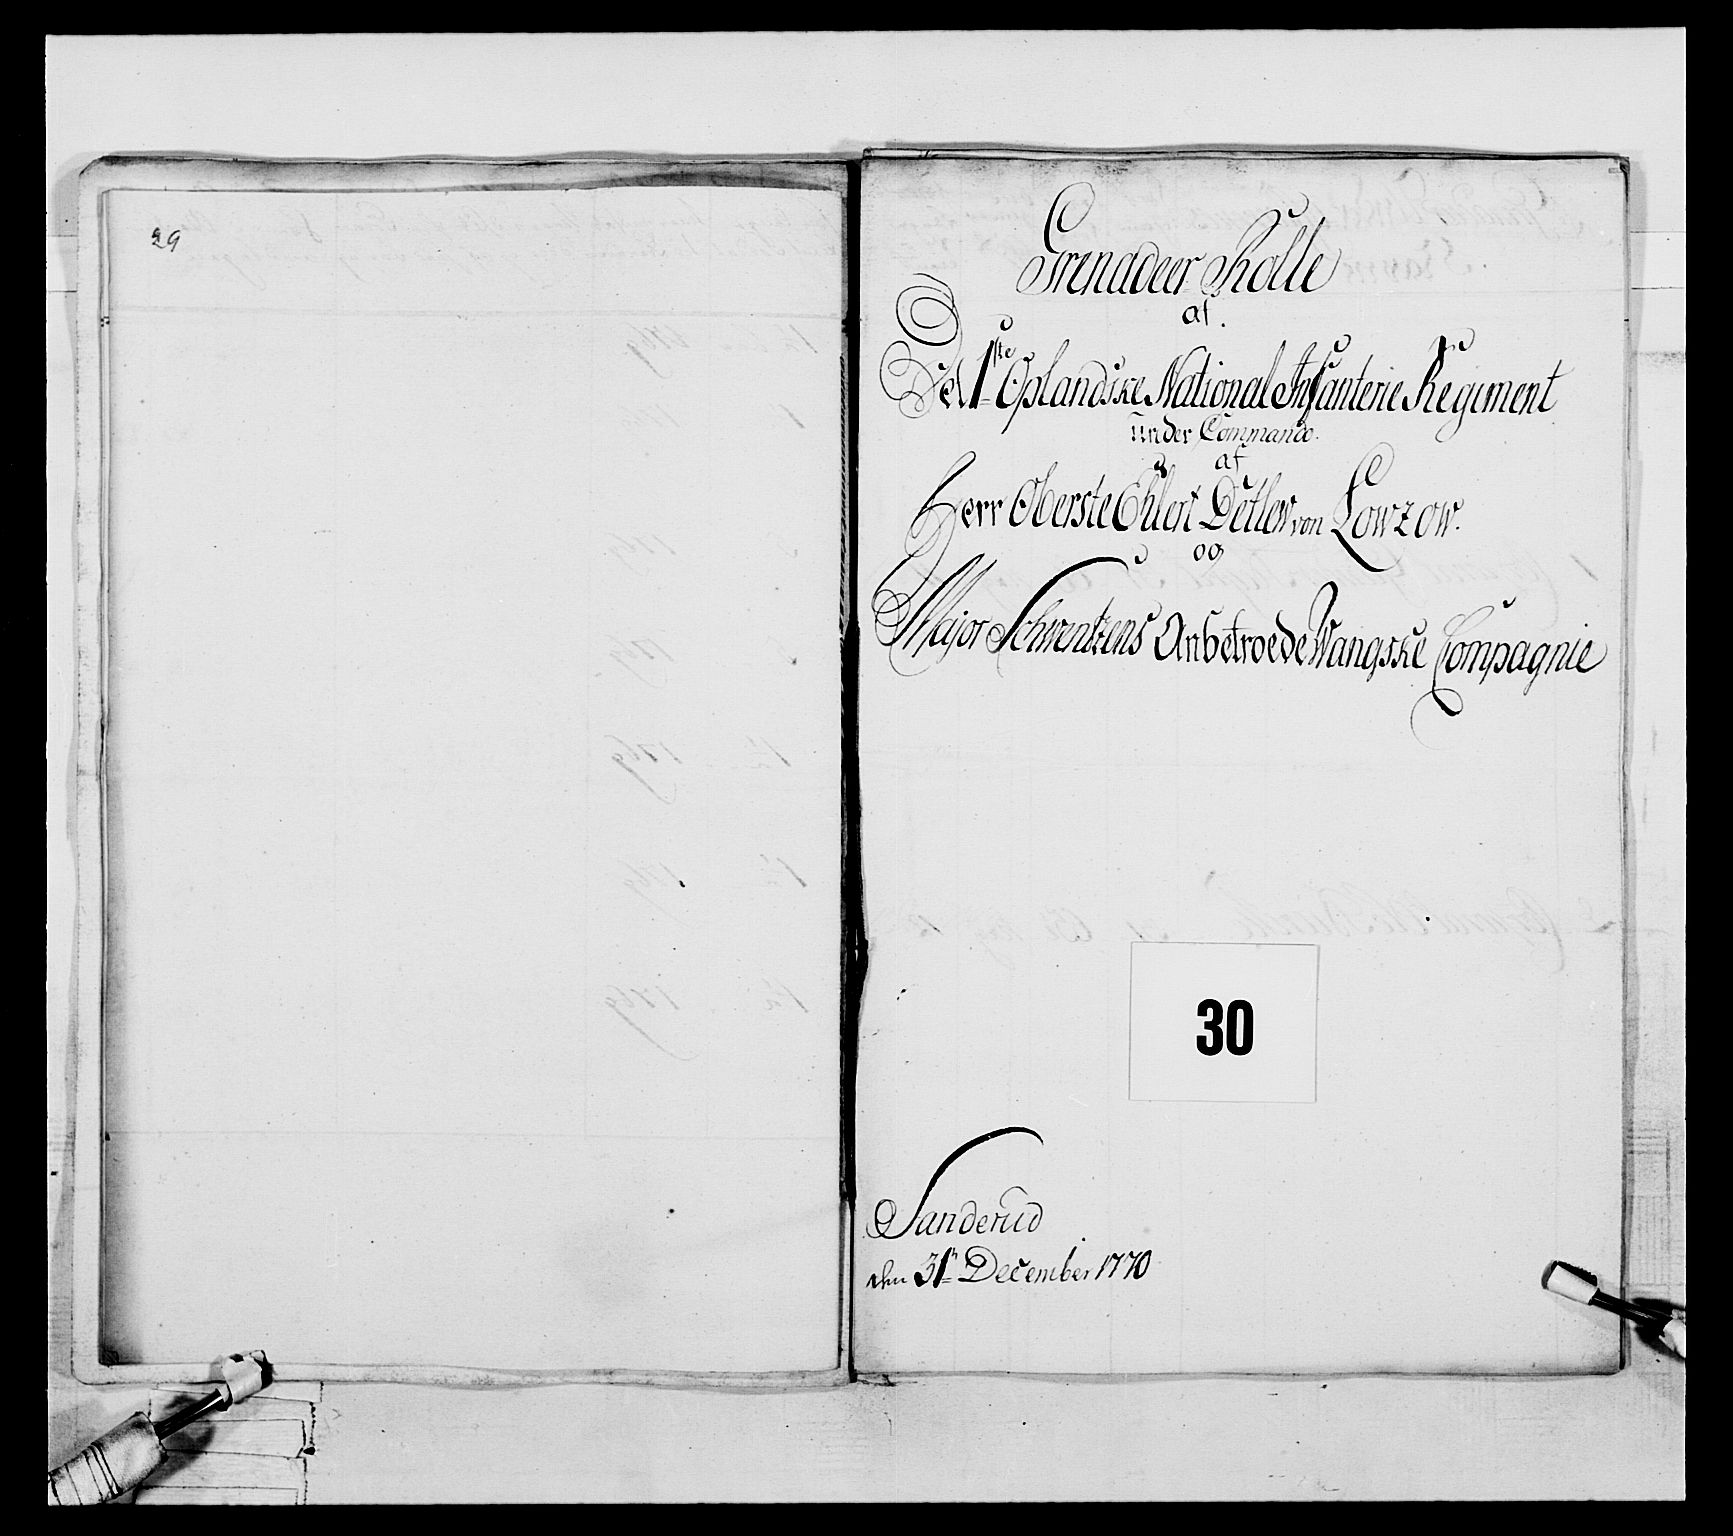 29
Grenadeer Rolle
af.
Det 1ste Oplandske National Infanterie Regiment
under Commando.
af
Herr Oberste Ehlert Detlew von Lowzow.
og
Major Schwentzens Anbetroede Wangske Compagnie
30
Sanderud
den 31n December 1770